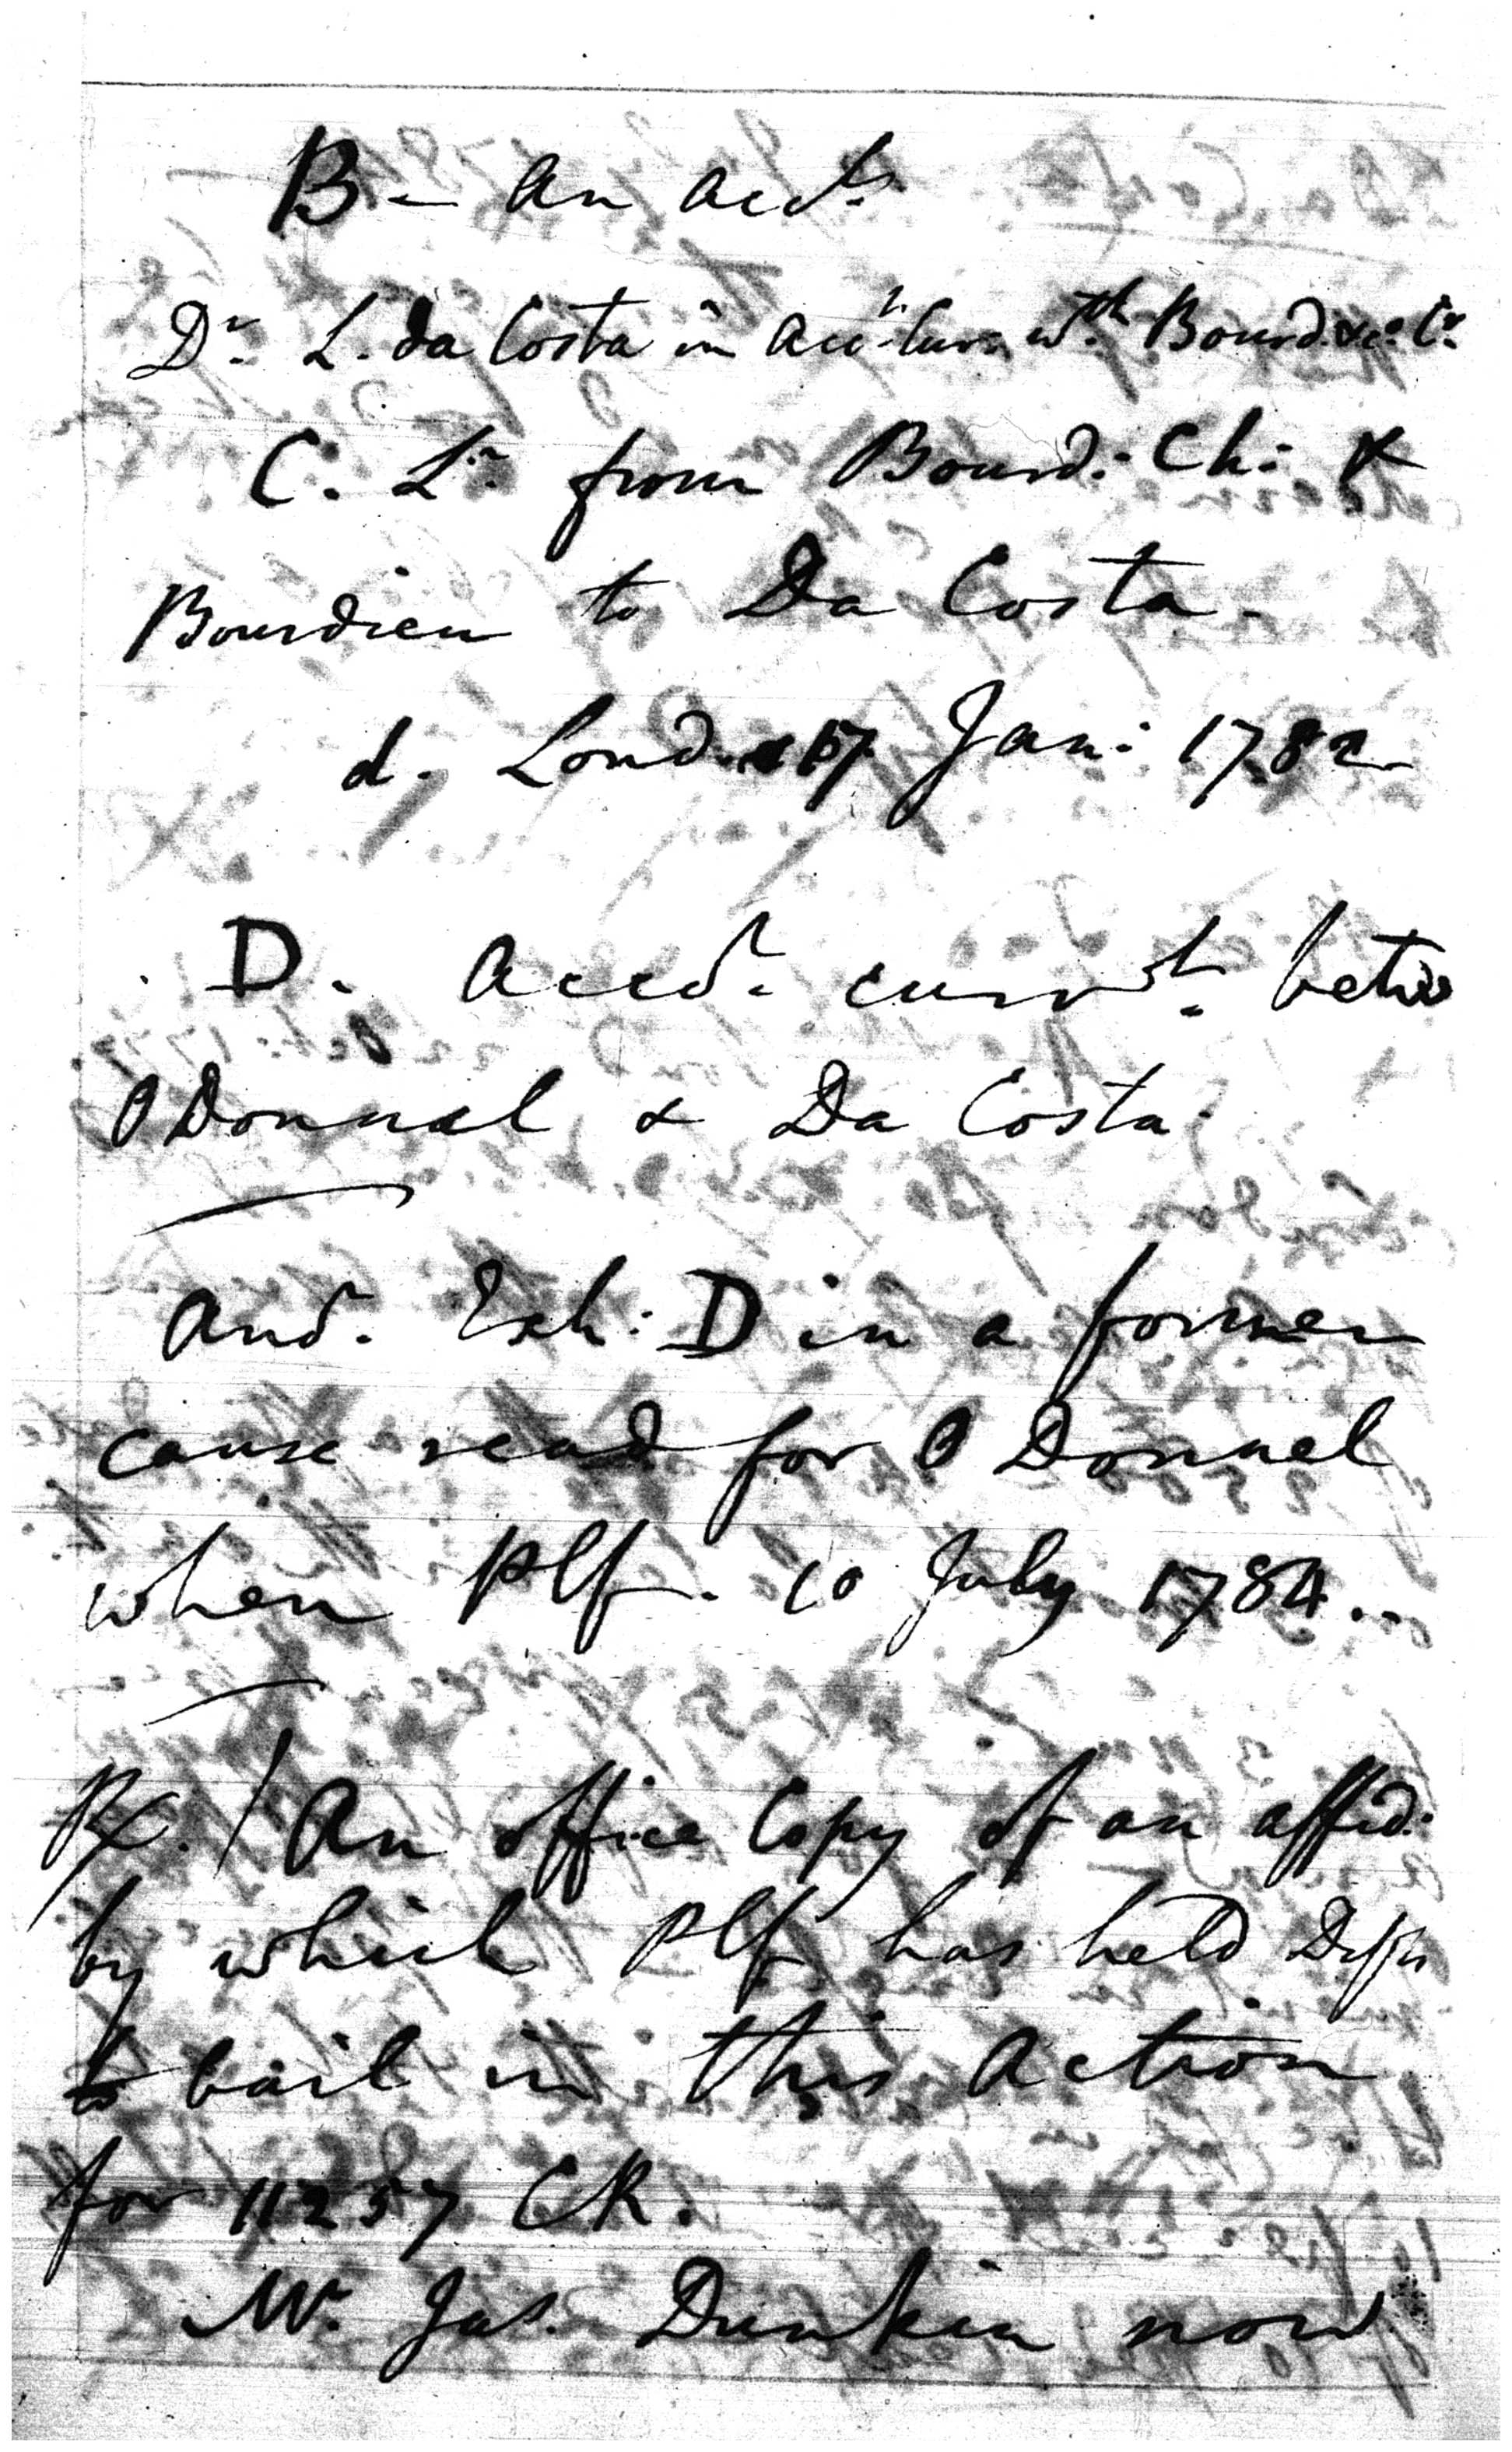 B - an acct.
Dr. L. da Costa in Acct. Curr. wth. Bourd. &c. Cr.
C. Lr. from Bourd: Ch: &
Bourdieu to Da Costa.
d. Lond. 17 Jan: 1782
D. Accot. currt. betw
O Donnel & Da Costa.
And. Exh: D in a former
cause read for O Donnel
when Plf. 10 July 1784..
An office Copy of an affid:
by which Plf has held Defts
to bail in this Action
for 11257 CR.
Mr. Jas. Dunkin now